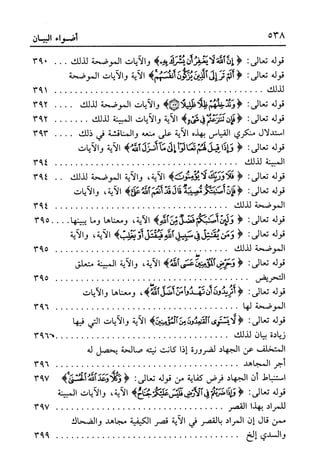 ٥٣٨ أضواء البيان
قوله تعالى: ﴿إِنَّ اللَّهَ لَا يَغْفِرُ أَن يُشْرَكَ بِهِ﴾ والآيات الموضحة لذلك ... ٣٩٠
قوله تعالى: ﴿أَلَمْ تَرَ إِلَى الَّذِينَ يُزَكُّونَ أَنفُسَهُم﴾ الآية والآيات الموضحة
لذلك ........................................ ٣٩١
قوله تعالى: ﴿وَنُدْخِلُهُمْ ظِلًّا ظَلِيلًا﴾ والآيات الموضحة لذلك .... ٣٩٢
قوله تعالى: ﴿فَإِن تَنَازَعْتُمْ فِي شَيْءٍ﴾ الآية والآيات المبينة لذلك ....... ٣٩٢
استدلال منكري القياس بهذه الآية على منعه والمناقشة في ذلك .... ٣٩٣
قوله تعالى: ﴿وَإِذَا قِيلَ لَهُمْ تَعَالَوْا إِلَىٰ مَا أَنزَلَ اللَّهُ﴾ الآية والآيات
المبينة لذلك ................................ ٣٩٤
قوله تعالى: ﴿فَلَا وَرَبِّكَ لَا يُؤْمِنُونَ﴾ الآية، والآية الموضحة لذلك .. ٣٩٤
قوله تعالى: ﴿فَإِنْ أَصَابَتْكُم مُّصِيبَةٌ قَالَ قَدْ أَنْعَمَ اللَّهُ عَلَيَّ﴾ الآية، والآيات
الموضحة لذلك ................................ ٣٩٤
قوله تعالى: ﴿وَلَئِنْ أَصَابَكُمْ فَضْلٌ مِّنَ اللَّهِ﴾ الآية، ومعناها وما يبينها.... ٣٩٥
قوله تعالى: ﴿وَمَن يُقَاتِلْ فِي سَبِيلِ اللَّهِ فَيُقْتَلْ أَوْ يَغْلِبْ﴾ الآية، والآية
الموضحة لذلك ................................ ٣٩٥
قوله تعالى: ﴿وَحَرِّضِ الْمُؤْمِنِينَ عَسَى اللَّهُ﴾ الآية، والآية المبينة متعلق
التحريض .................................... ٣٩٥
قوله تعالى: ﴿أَتُرِيدُونَ أَن تَهْدُوا مَنْ أَضَلَّ اللَّهُ﴾، ومعناها والآيات
الموضحة لها ................................ ٣٩٦
قوله تعالى: ﴿لَّا يَسْتَوِي الْقَاعِدُونَ مِنَ الْمُؤْمِنِينَ﴾ الآية والآيات التي فيها
زيادة بيان لذلك ............................. ٣٩٦
المتخلف عن الجهاد لضرورة إذا كانت نيته صالحة يحصل له
أجر المجاهد ................................ ٣٩٦
استنباط أن الجهاد فرض كفاية من قوله تعالى: ﴿وَكُلًّا وَعَدَ اللَّهُ الْحُسْنَىٰ﴾ ٣٩٧
قوله تعالى: ﴿وَإِذَا ضَرَبْتُمْ فِي الْأَرْضِ فَلَيْسَ عَلَيْكُمْ جُنَاحٌ﴾ الآية، والآيات المبينة
للمراد بهذا القصر ........................... ٣٩٧
ممن قال إن المراد بالقصر في الآية قصر الكيفية مجاهد والضحاك
والسدي إلخ ................................ ٣٩٩